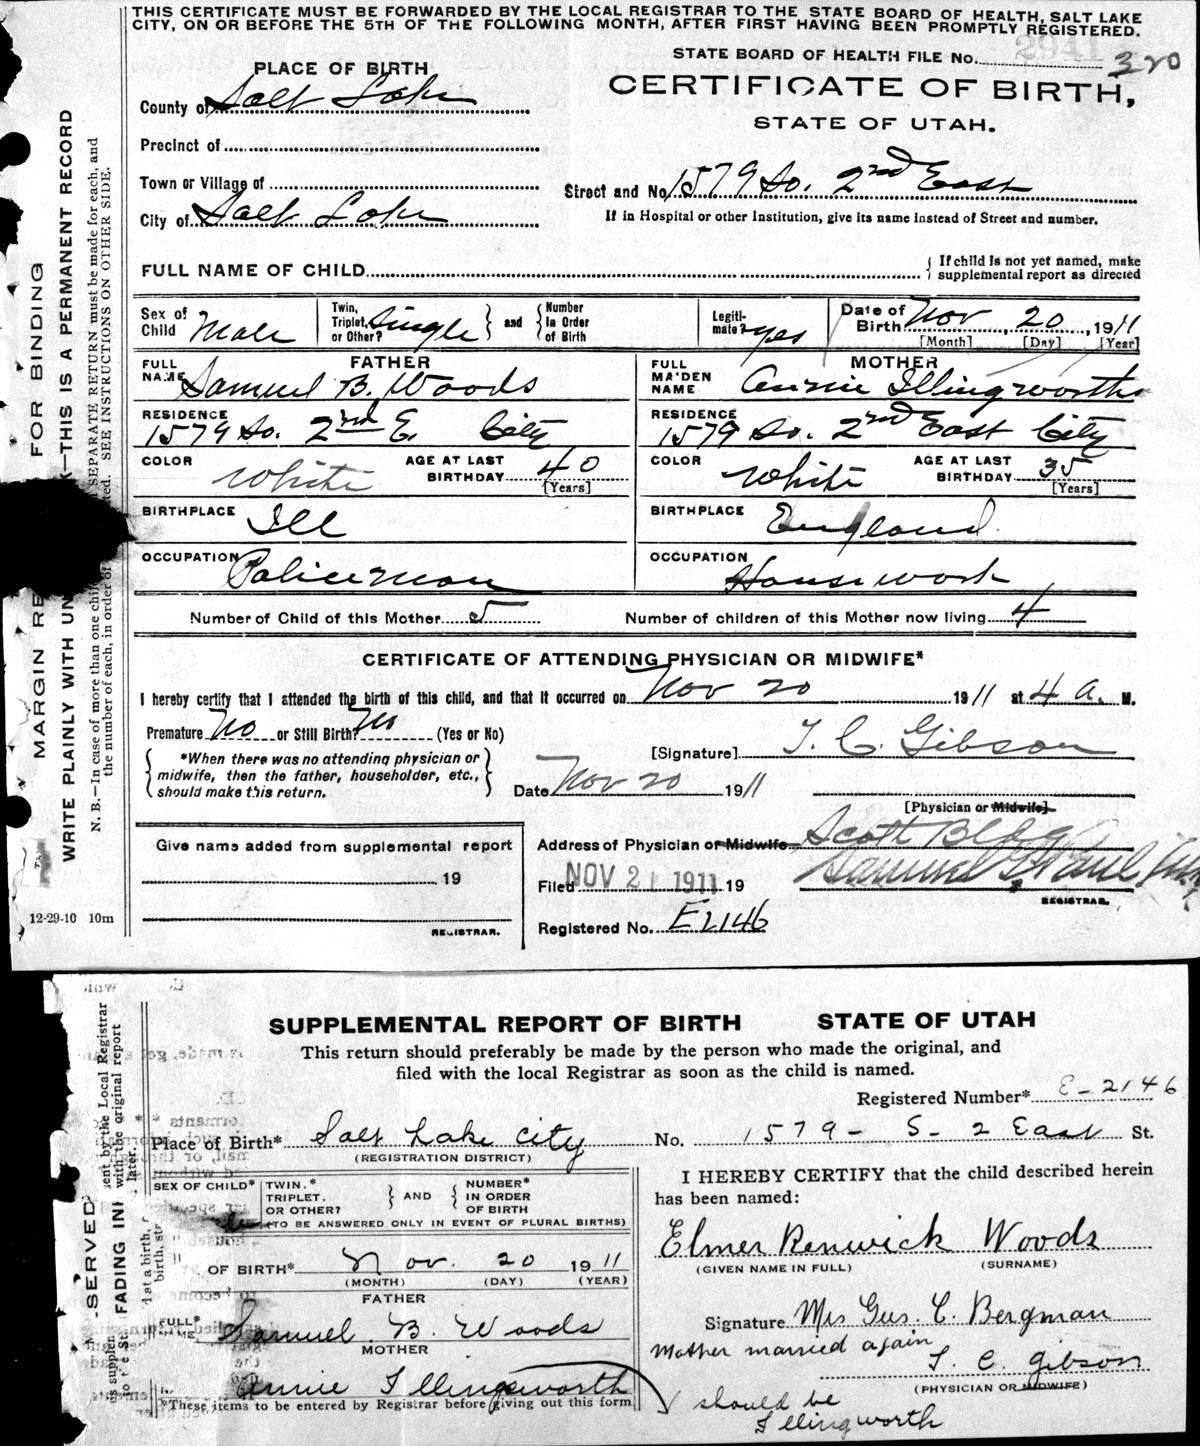 THIS CERTIFICATE MUST BE FORWARDED BY THE LOCAL REGISTRAR TO THE STATE BOARD OF HEALTH, SALT LAKE
CITY, ON OR BEFORE THE 5TH OF THE FOLLOWING MONTH, AFTER FIRST HAVING BEEN PROMPTLY REGISTERED.
STATE BOARD OF HEALTH FILE No. 2941 320
PLACE OF BIRTH
CERTIFICATE OF BIRTH,
STATE OF UTAH.
County of Salt Lake
Precinct of
Town or Village of
City of Salt Lake
Street and No. 1579 So. 2nd East
If in Hospital or other Institution, give its name instead of Street and number.
FULL NAME OF CHILD
If child is not yet named, make
supplemental report as directed
Sex of Child Male
Twin, Triplet, or Other? Single and Number In Order of Birth
Legitimate? yes
Date of Birth Nov 20, 1911
[Month] [Day] [Year]
FATHER
FULL NAME Samuel B. Woods
RESIDENCE 1579 So. 2nd E. City
COLOR White AGE AT LAST BIRTHDAY 40 [Years]
BIRTHPLACE Ill
OCCUPATION Policeman
MOTHER
FULL MAIDEN NAME Annie Illingworths
RESIDENCE 1579 So. 2nd East City
COLOR White AGE AT LAST BIRTHDAY 35 [Years]
BIRTHPLACE England
OCCUPATION Housework
Number of Child of this Mother 5 Number of children of this Mother now living 4
CERTIFICATE OF ATTENDING PHYSICIAN OR MIDWIFE*
I hereby certify that I attended the birth of this child, and that it occurred on Nov 20 1911 at 4 a. M.
Premature No or Still Birth? No (Yes or No)
*When there was no attending physician or
midwife, then the father, householder, etc.,
should make this return.
[Signature] T. C. Gibson
Date Nov 20 1911
[Physician or Midwife]
Address of Physician or Midwife Scott Bldg
Give name added from supplemental report
19
REGISTRAR.
Filed NOV 21 1911 19
Samuel G. Paul
REGISTRAR.
Registered No. E2146
12-29-10 10m
FOR BINDING
MARGIN RE
WRITE PLAINLY WITH UN K—THIS IS A PERMANENT RECORD
N. B.—In case of more than one chil SEPARATE RETURN must be made for each, and
the number of each, in order of ted. SEE INSTRUCTIONS ON OTHER SIDE.
SUPPLEMENTAL REPORT OF BIRTH STATE OF UTAH
This return should preferably be made by the person who made the original, and
filed with the local Registrar as soon as the child is named.
Registered Number* E-2146
Place of Birth* Salt Lake City No. 1579 - S- 2 East St.
(REGISTRATION DISTRICT)
SEX OF CHILD*
TWIN.* TRIPLET. OR OTHER? AND NUMBER* IN ORDER OF BIRTH
(TO BE ANSWERED ONLY IN EVENT OF PLURAL BIRTHS)
OF BIRTH* Nov. 20 1911
(MONTH) (DAY) (YEAR)
FATHER
FULL* NAME Samuel B. Woods
MOTHER
Annie Illingsworth
*These items to be entered by Registrar before giving out this form
I HEREBY CERTIFY that the child described herein
has been named:
Elmer Renwick Woods
(GIVEN NAME IN FULL) (SURNAME)
Signature Mrs Gus. C. Bergman
Mother married again
T. C. Gibson
(PHYSICIAN OR MIDWIFE)
should be
Illingworth
SERVED
FADING IN
ent by the Local Registrar
with the original report
later.